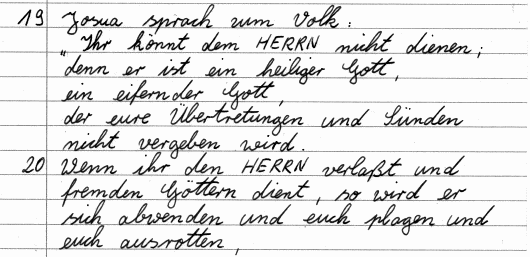 19 Josua sprach zum Volk:
„Ihr könnt dem HERRN nicht dienen;
denn er ist ein heiliger Gott,
ein eifernder Gott,
der eure Übertretungen und Sünden
nicht vergeben wird.
20 Wenn ihr den HERRN verlaßt und
fremden Göttern dient, so wird er
sich abwenden und euch plagen und
euch ausrotten,